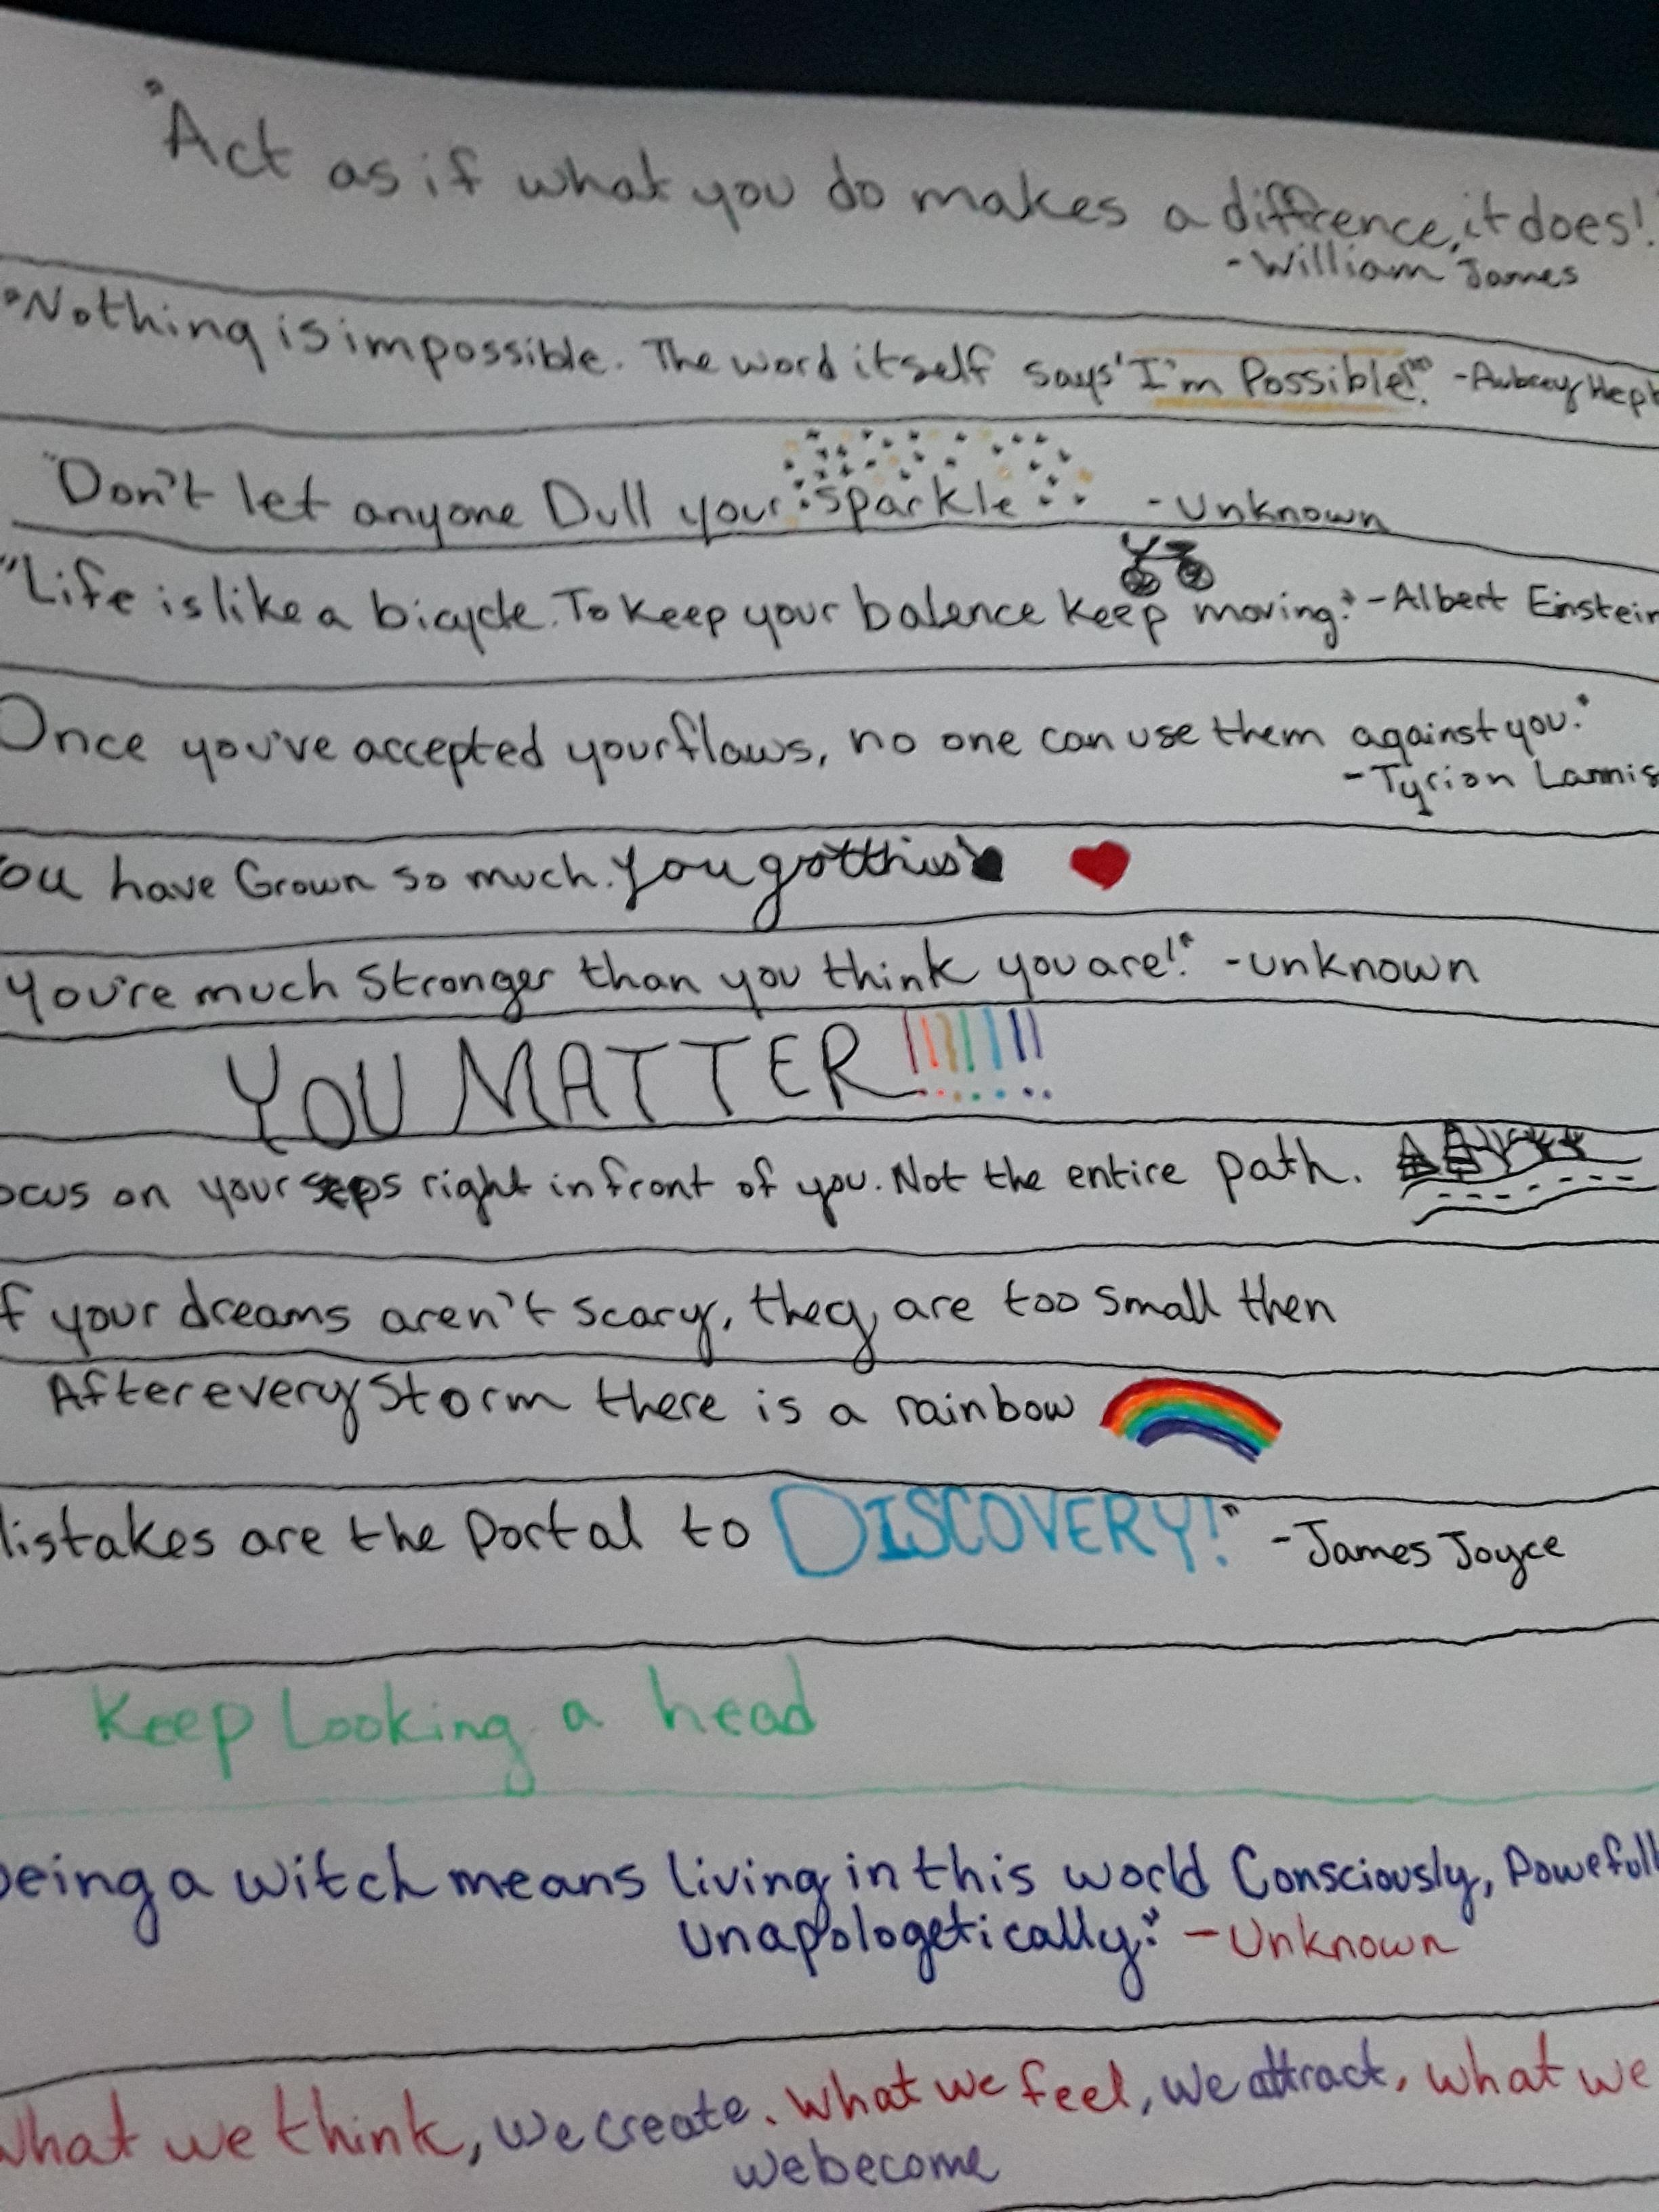 "Act as if what you do makes a diffrence, it does!"
-William James
"Nothing is impossible. The word itself says 'I'm Possible!'" -Aubrey Hep
"Don't let anyone Dull your sparkle -Unknown
"Life is like a bicycle. To keep your balence keep moving." -Albert Einstein
Once you've accepted your flaws, no one can use them against you."
-Tyrion Lannis
ou have Grown so much. You got this
you're much Stronger than you think you are!" -unknown
YOU MATTER!!!!!!!
ocus on your steps right in front of you. Not the entire path.
f your dreams aren't scary, they are too small then
After every Storm there is a rainbow
listakes are the portal to DISCOVERY!" -James Joyce
Keep Looking a head
being a witch means living in this world Consciously, Powefull
unapologetically." -Unknown
what we think, we create. what we feel, we attract, what we
we become